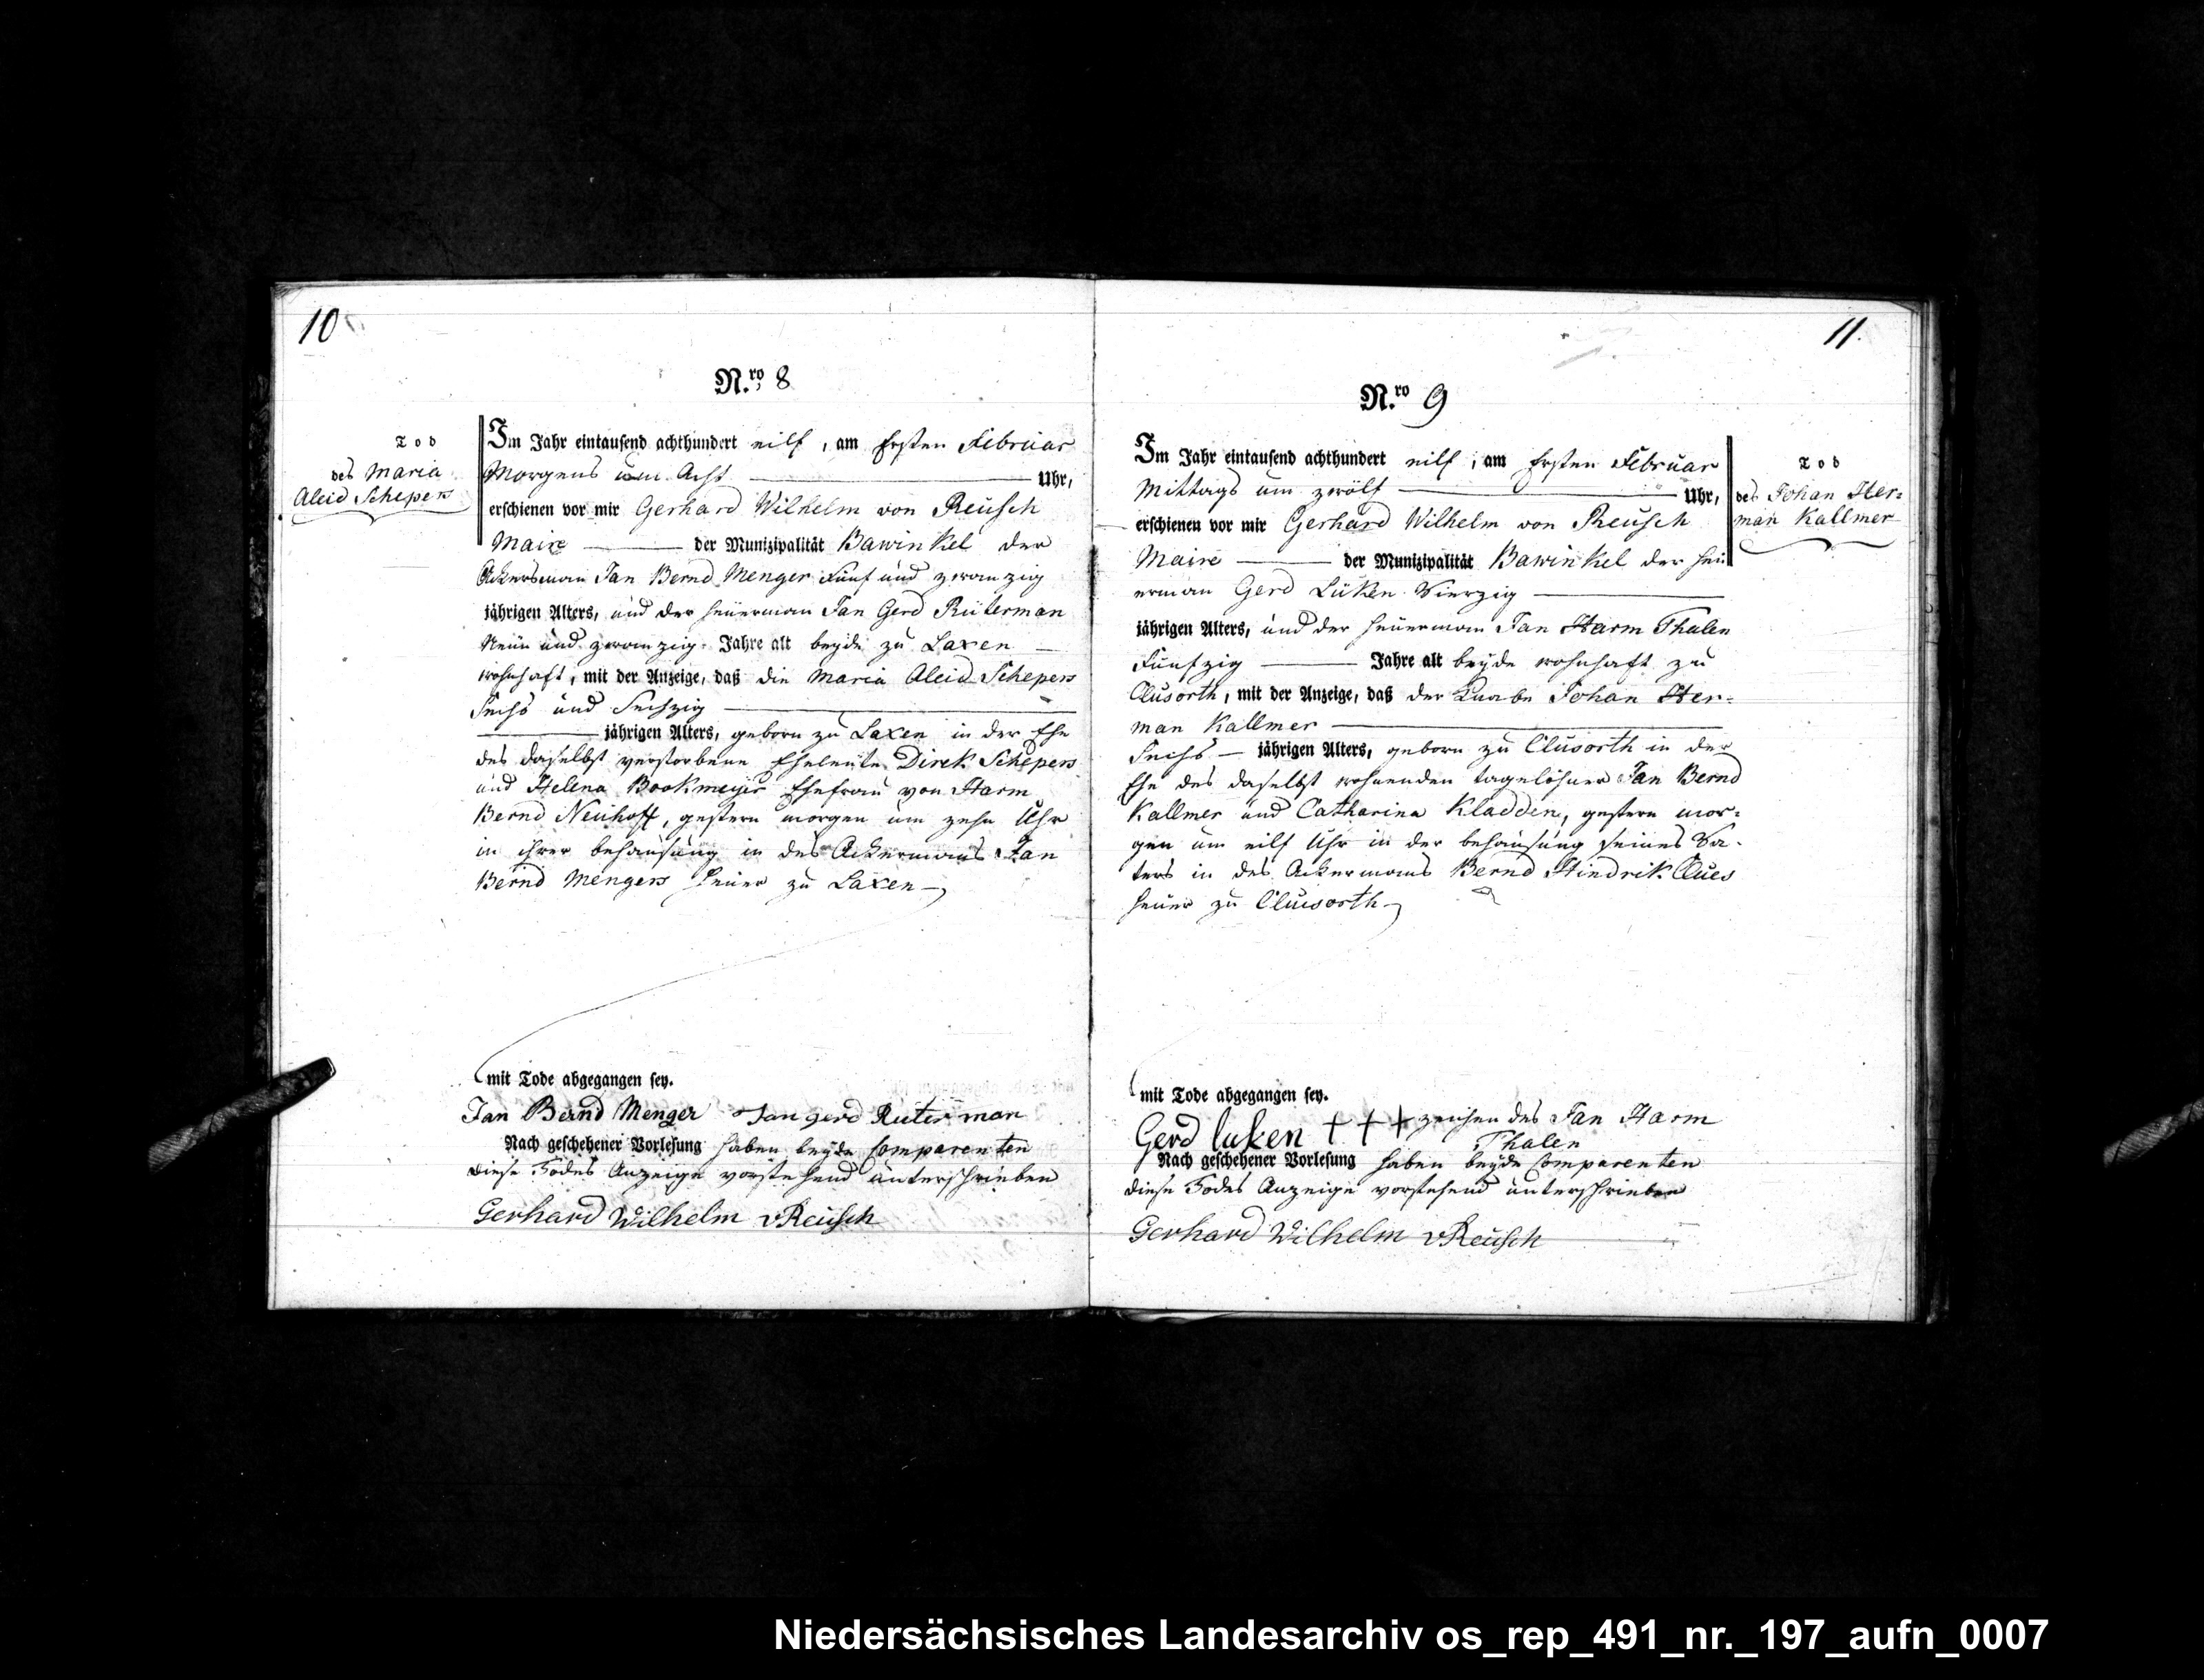 10
N.ro 8
Tod
des Maria
Aleid Schepers
Im Jahr eintausend achthundert eilf, am Ersten Februar
Morgens um Acht Uhr,
erschienen vor mir Gerhard Wilhelm von Reusch
Maire der Munizipalität Bawinkel der
Ackersman Jan Bernd Menger Fünf und zwanzig
jährigen Alters, und der heuerman Jan Gerd Rüterman
Neun und zwanzig Jahre alt beyde zu Laxen
wohnhaft, mit der Anzeige, daß die Maria Aleid Schepers
Sechs und Sechzig
jährigen Alters, geborn zu Laxen in der Ehe
des daselbst verstorbene Eheleute Direk Schepers
und Helena Bookmeyer Ehefrau von Harm
Bernd Neuhoff, gestern morgen um zehn Uhr
in ihrer behausung in des Ackermans Jan
Bernd Mengers heuer zu Laxen
mit Tode abgegangen sey.
Jan Bernd Menger Jan gerd Ruterman
Nach geschehener Vorlesung haben beyde Comparenten
diese Todes Anzeige vorstehend unterschrieben
Gerhard Wilhelm vReusch
11.
N.ro 9
Im Jahr eintausend achthundert eilf, am Ersten Februar
Mittags um zwölf Uhr,
erschienen vor mir Gerhard Wilhelm von Reusch
Maire der Munizipalität Bawinkel der heu
erman Gerd Lüken Vierzig
jährigen Alters, und der heuerman Jan Harm Thalen
Funfzig Jahre alt beyde wohnhaft zu
Clusorth, mit der Anzeige, daß der Knabe Johan Her-
man Kallmer
Sechs jährigen Alters, geborn zu Clusorth in der
Ehe des daselbst wohnenden tagelöhner Jan Bernd
Kallmer und Catharina Kladden, gestern mor-
gen um eilf Uhr in der behausung seines Va-
ters in des Ackermans Bernd Hindrik Clues
heuer zu Clusorth
Tod
des Johan Her-
man Kallmer
mit Tode abgegangen sey.
Gerd luken + + + zeichen des Jan Harm
Thalen
Nach geschehener Vorlesung haben beyde Comparenten
diese Todes Anzeige vorstehend unterschrieben
Gerhard Wilhelm vReusch
Niedersächsisches Landesarchiv os_rep_491_nr._197_aufn_0007